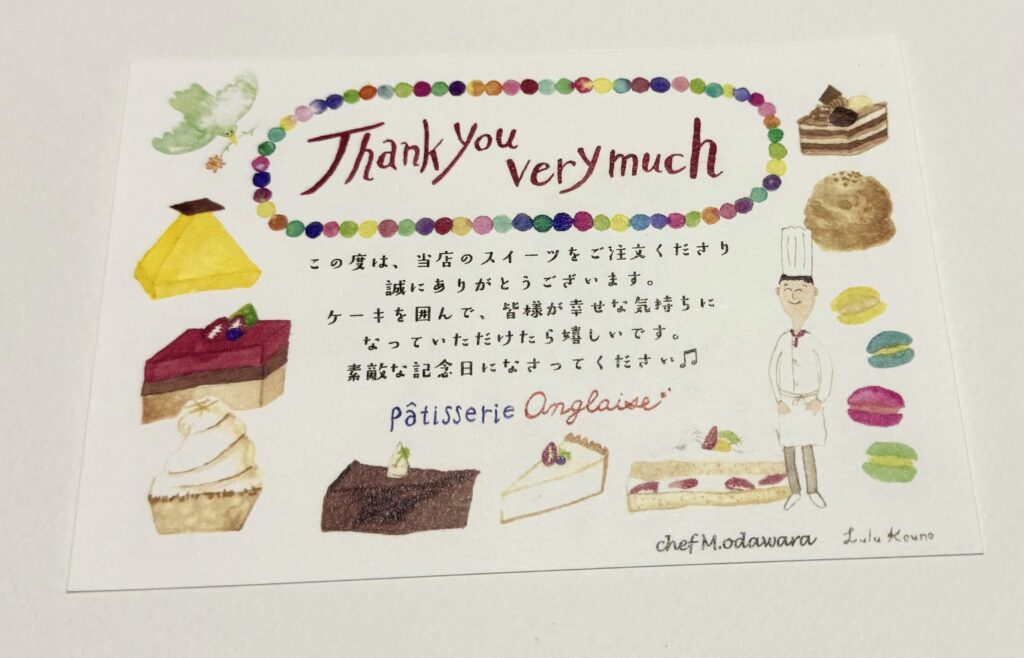 Thank you
very much
この度は、当店のスイーツをご注文くださり
誠にありがとうございます。
ケーキを囲んで、皆様が幸せな気持ちに
なっていただけたら嬉しいです。
素敵な記念日になさってください♫
pâtisserie Anglaise
chef M.odawara
Lulu Kouno